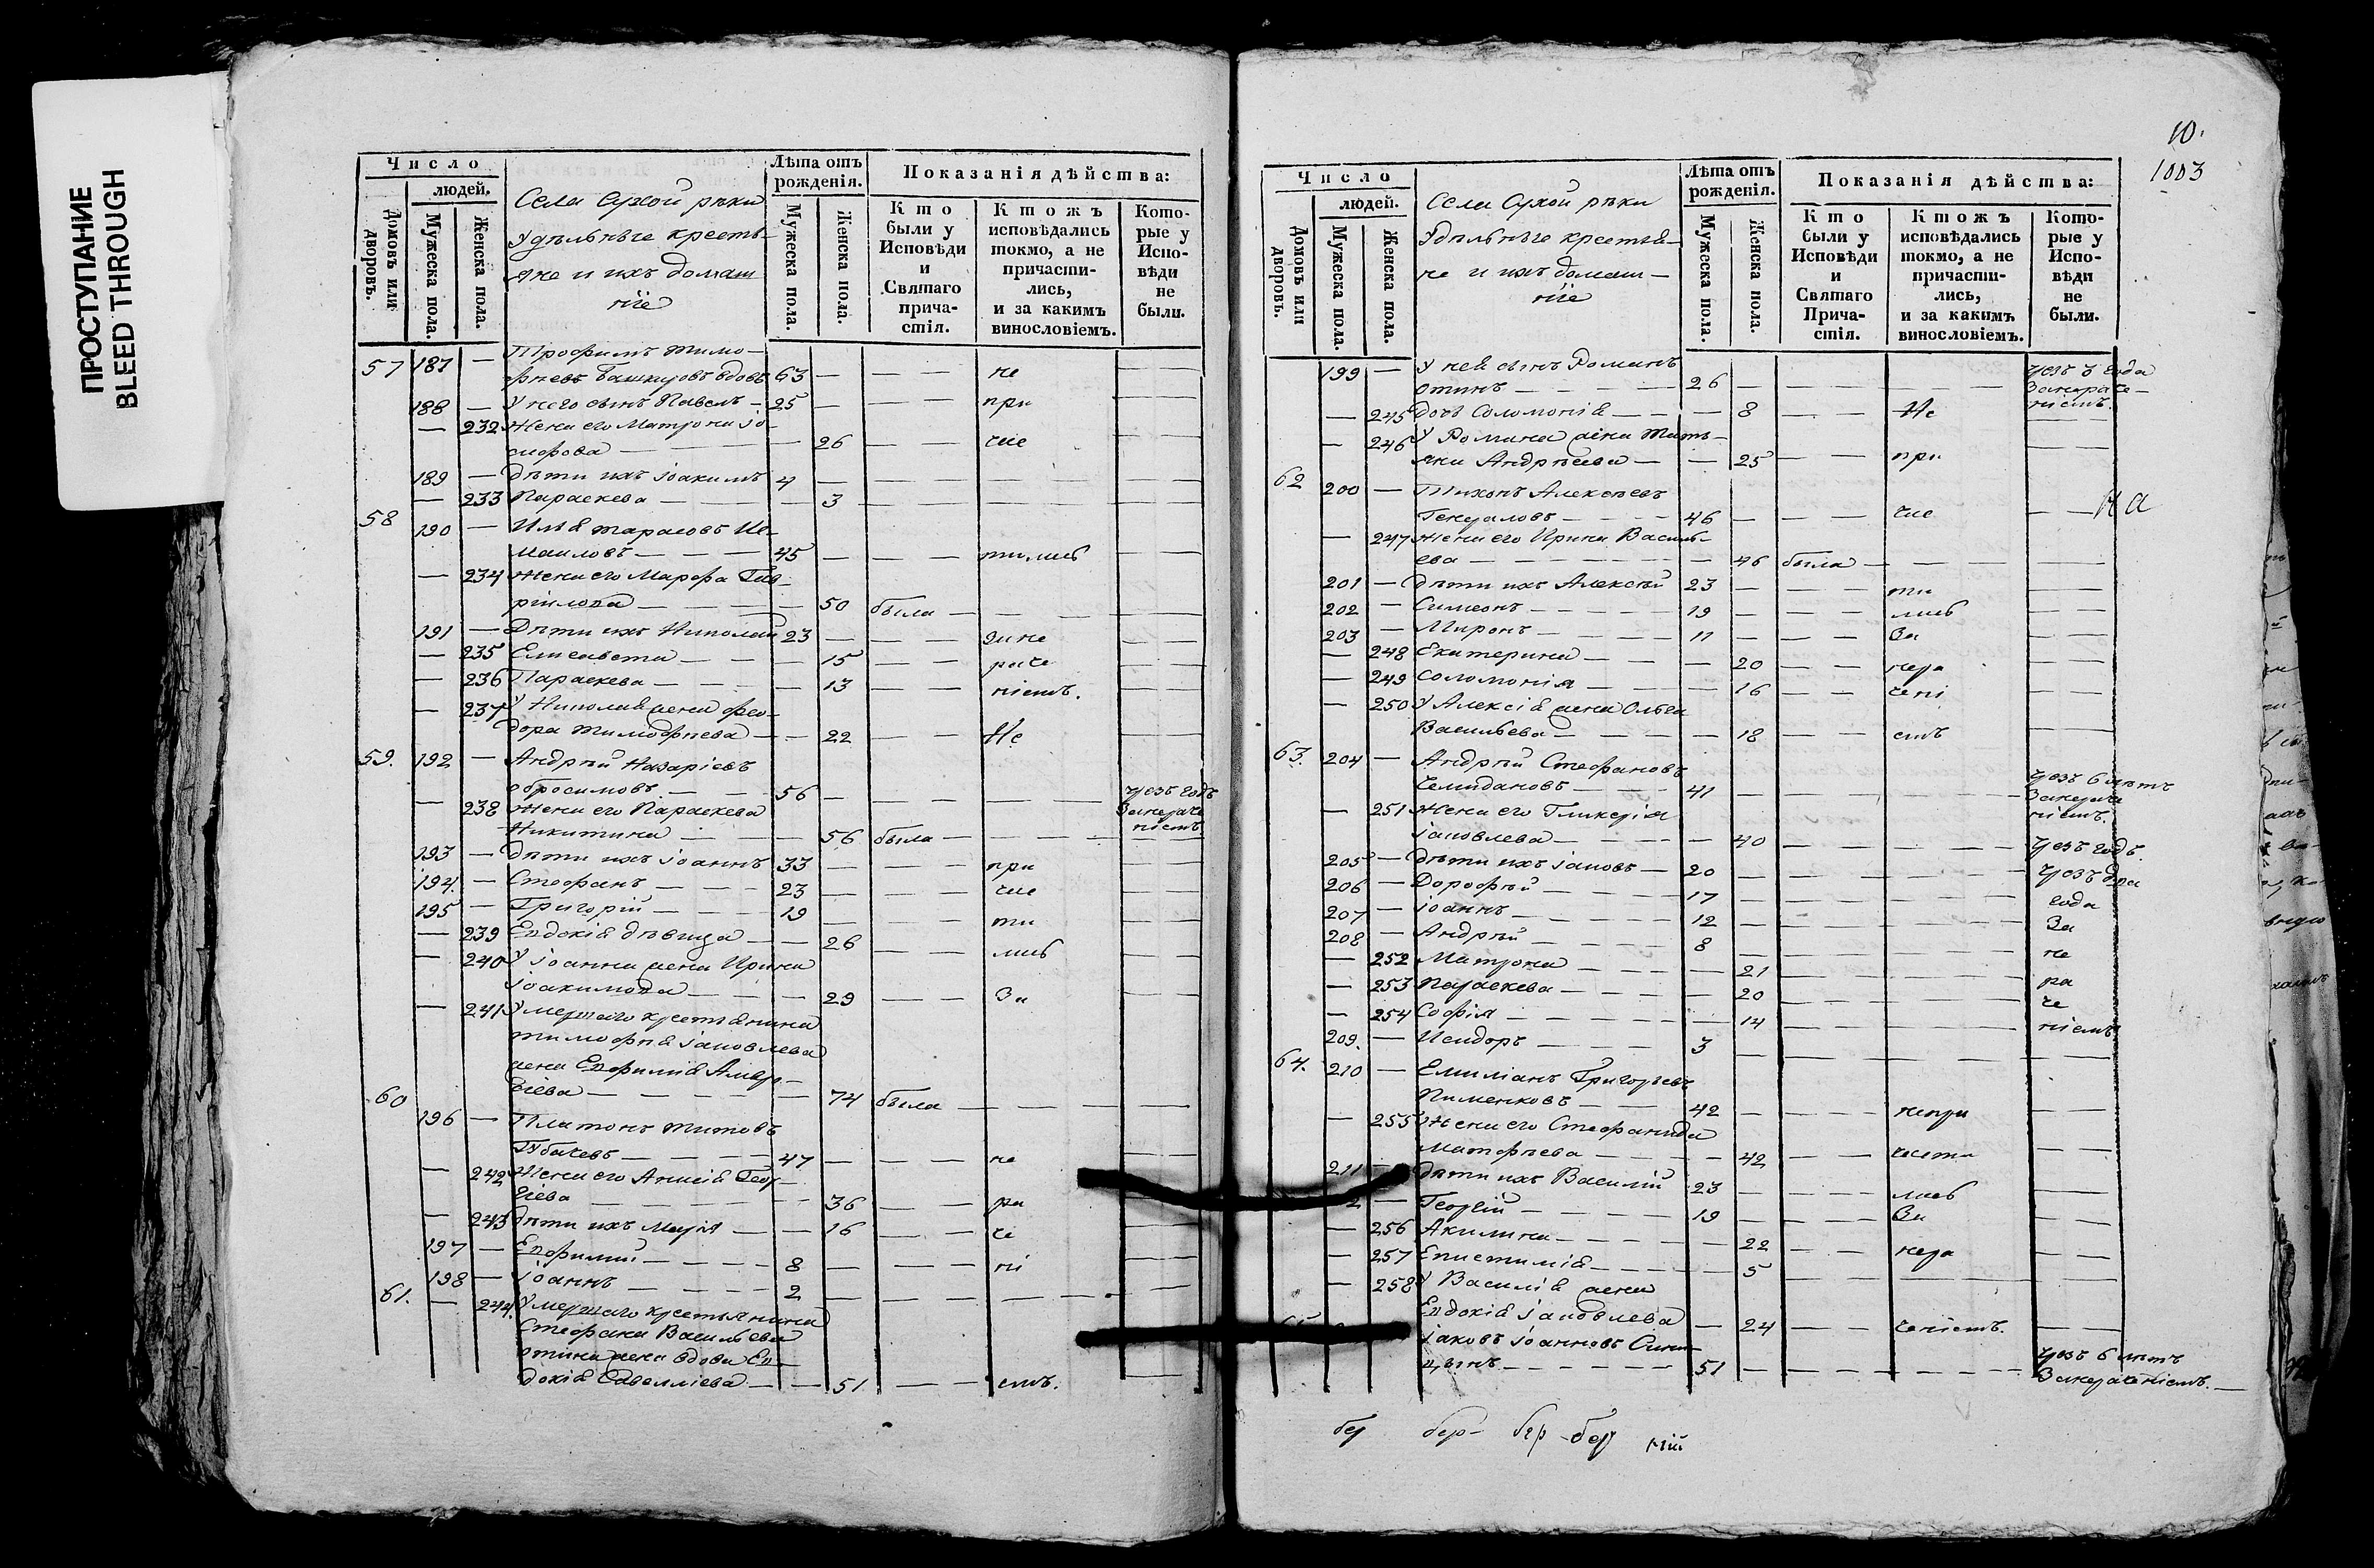 ПРОСТУПАНИЕ
BLEED THROUGH
Число
людей.
Домовъ или дворовъ.
Мужеска пола.
Женска пола.
Села Сухой рѣки
Удѣльныхе крестья-
яне и ихъ домаш
ніе
Лѣта отъ рожденія.
Мужеска пола.
Женска пола.
Показанія дѣйства:
Кто были у Исповѣди и Святаго причастія.
Ктожъ исповѣдались токмо, а не причастились, и за какимъ винословіемъ.
Которые у Исповѣди не были.
57 187 — Трофимъ Тимо-
фѣевъ Башкировъ вдовъ 63 — — — не — —
188 — У него сынъ Павелъ — 25 — — — при — —
— 232 Жена его Матрона
— 26 — — чис — —
189 — Дѣти ихъ Іоакимъ 4 —
— 233 Параскева — — 3
58 190 — Илія Тарасовъ
45 — — — тились — —
— 234 Жена его Марфа Гав-
ріилова — — 50 была —
191 — Дѣти ихъ Николай 23 — — — зане — —
— 235 Елисавета — — 15 — — раче — —
— 236 Параскева — — 13 — — ніемъ. — —
— 237 У Николая жена Фео-
дора Тимофѣева — — 22 — — Не —
59. 192 — Андрѣй Назаріевъ
Обросимовъ. — 56 — — — — чрезъ годъ
— 238 Жена его Параскева Занераче
Никитина — — 56 была — — — ніемъ
193 — Дѣти ихъ Іоаннъ 33 — — — при — —
194. — Стефанъ — 23 — — — чис — —
195 — Григорій — 19 — — — ти — —
— 239 Евдокія дѣвица — — 26 — — лись — —
— 240 У Іоанна жена Ирина
Іоакимова — — 29 — — За — —
— 241 Умершаго крестьянина
Тимофѣя Іаковлева
жена Евфимія
— 74 была —
60 196 — Платонъ Титовъ
47 — — — не — —
— 242 Жена его Анисія Геор-
гіева — — 36 — — ра — —
— 243 Дѣти ихъ Марія — — 16 — — че — —
197 — Евфимій — 8 — — — ні — —
198 — Іоаннъ — 2 —
61. — 244. Умершаго крестьянина
Стефана Васильева
жена вдова Ев-
докія Савелліева — — 51 — — емъ. —
10.
1003
Число
людей.
Домовъ или дворовъ.
Мужеска пола.
Женска пола.
Села Сухой рѣки
Удѣльныхе крестья-
не и ихъ домаш —
ніе
Лѣта отъ рожденія.
Мужеска пола.
Женска пола.
Показанія дѣйства:
Кто были у Исповѣди и Святаго Причастія.
Ктожъ исповѣдались токмо, а не причастились, и за какимъ винословіемъ.
Которые у Исповѣди не были.
199 — У ней сынъ Романъ чрезъ года
26 — — — — Занераче-
— 245 дочь Соломонія — — 8 — — Не ніемъ.
— 246 У Романа жена Тать-
яна Андрѣева — — 25 — — при — —
62 200 — Тихонъ Алексѣевъ
Генераловъ — 46 — — — чис — —
— 247 Жена его Ирина Василь-
ева — — 46 была —
201 — Дѣти ихъ Алексѣй 23 — — — ти — —
202 — Симеонъ — 19 — — — лись — —
203 — Миронъ — 11 — — — За — —
— 248 Екатерина — — 20 — — нера —
— 249 Соломонія — — 16 — — чені —
— 250 У Алексія жена Ольга
Васильева — — 18 — — емъ —
63. 204 — Андрѣй Стефановъ чрезъ 6 лѣтъ
Чемидановъ — 41 — — — Занераче
— 251 Жена его Гликерія ніемъ.
Іаковлева — — 40 — — — чрезъ годъ.
205 — Дѣти ихъ Іаковъ — 20 — — — чрезъ два
206 — Дорофѣй — 17 — — — года
207 — Іоаннъ — 12 — — — За
208 — Андрѣй — 8 — — — не
— 252 Матрона — — 21 — — — ра
— 253 Параскева — — 20 — — — че
— 254 Софія — — 14 — — — ніемъ
209. — Исидоръ — 3 —
64. 210 — Емиліанъ Григорьевъ
Пименковъ — 42 — — — непри — —
— 255 Жена его Стефанида
Матофѣева — — 42 — — части —
211 Дѣти ихъ Василій 23 — — — лись —
2 Георгій — 19 — — — За — —
— 256 Акилина — — 22 — — нера — —
— 257 Епистимія — — 5 —
— 258 У Василія жена
Евдокія Іаковлева — 24 — — ченіемъ. —
Іаковъ Іоанновъ чрезъ 6 лѣтъ
51 — — — — Занераченіемъ. —
бер бер- бер бер ній